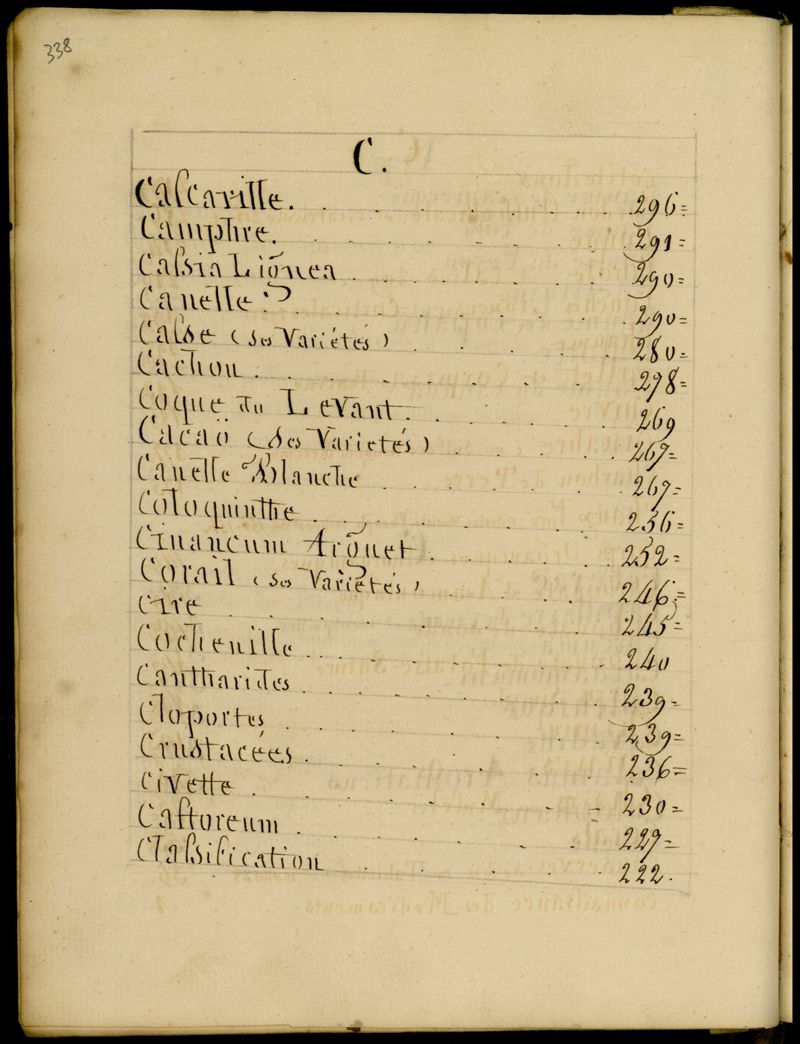 338
C.
Cascarille. 296=
Camphre. 291=
Cassia Lignea 290=
Canelle ? 290=
Casse (Ses Variétés) 280=
Cachou. 278=
Coque du Levant. 269
Cacao (des Varietés) 267=
Canelle Blanche 267=
Coloquinthe 256=
Cinancum Arguet 252=
Corail (Ses Varietés) 246=
Cire 245=
Cochenille 240
Cantharides 239=
Cloportes 239=
Crustacées 236=
Civette 230=
Castoreum 227=
Classification 222.